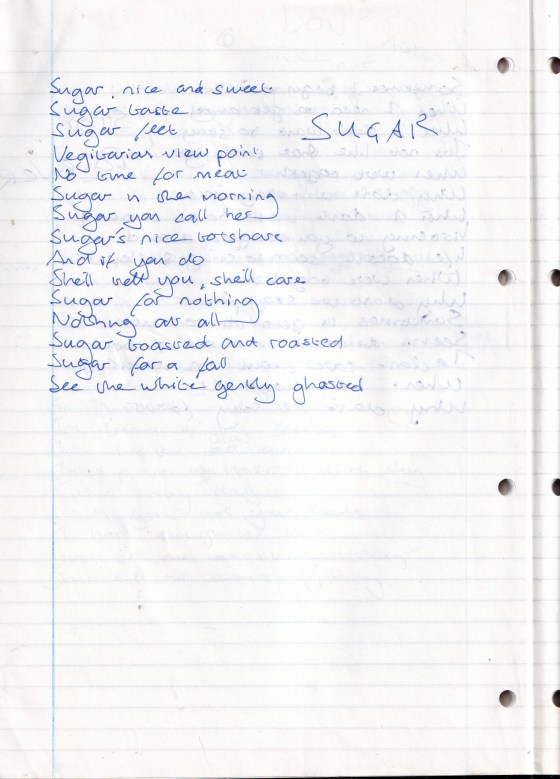 SUGAR
Sugar, nice and sweet
Sugar taste
Sugar feet
Vegitarian view point
No time for meat
Sugar n the morning
Sugar you call her
Sugar's nice to share
And if you do
She'll melt you, she'll care
Sugar for nothing
Nothing at all
Sugar toasted and roasted
Sugar for a fall
See the white gently ghosted